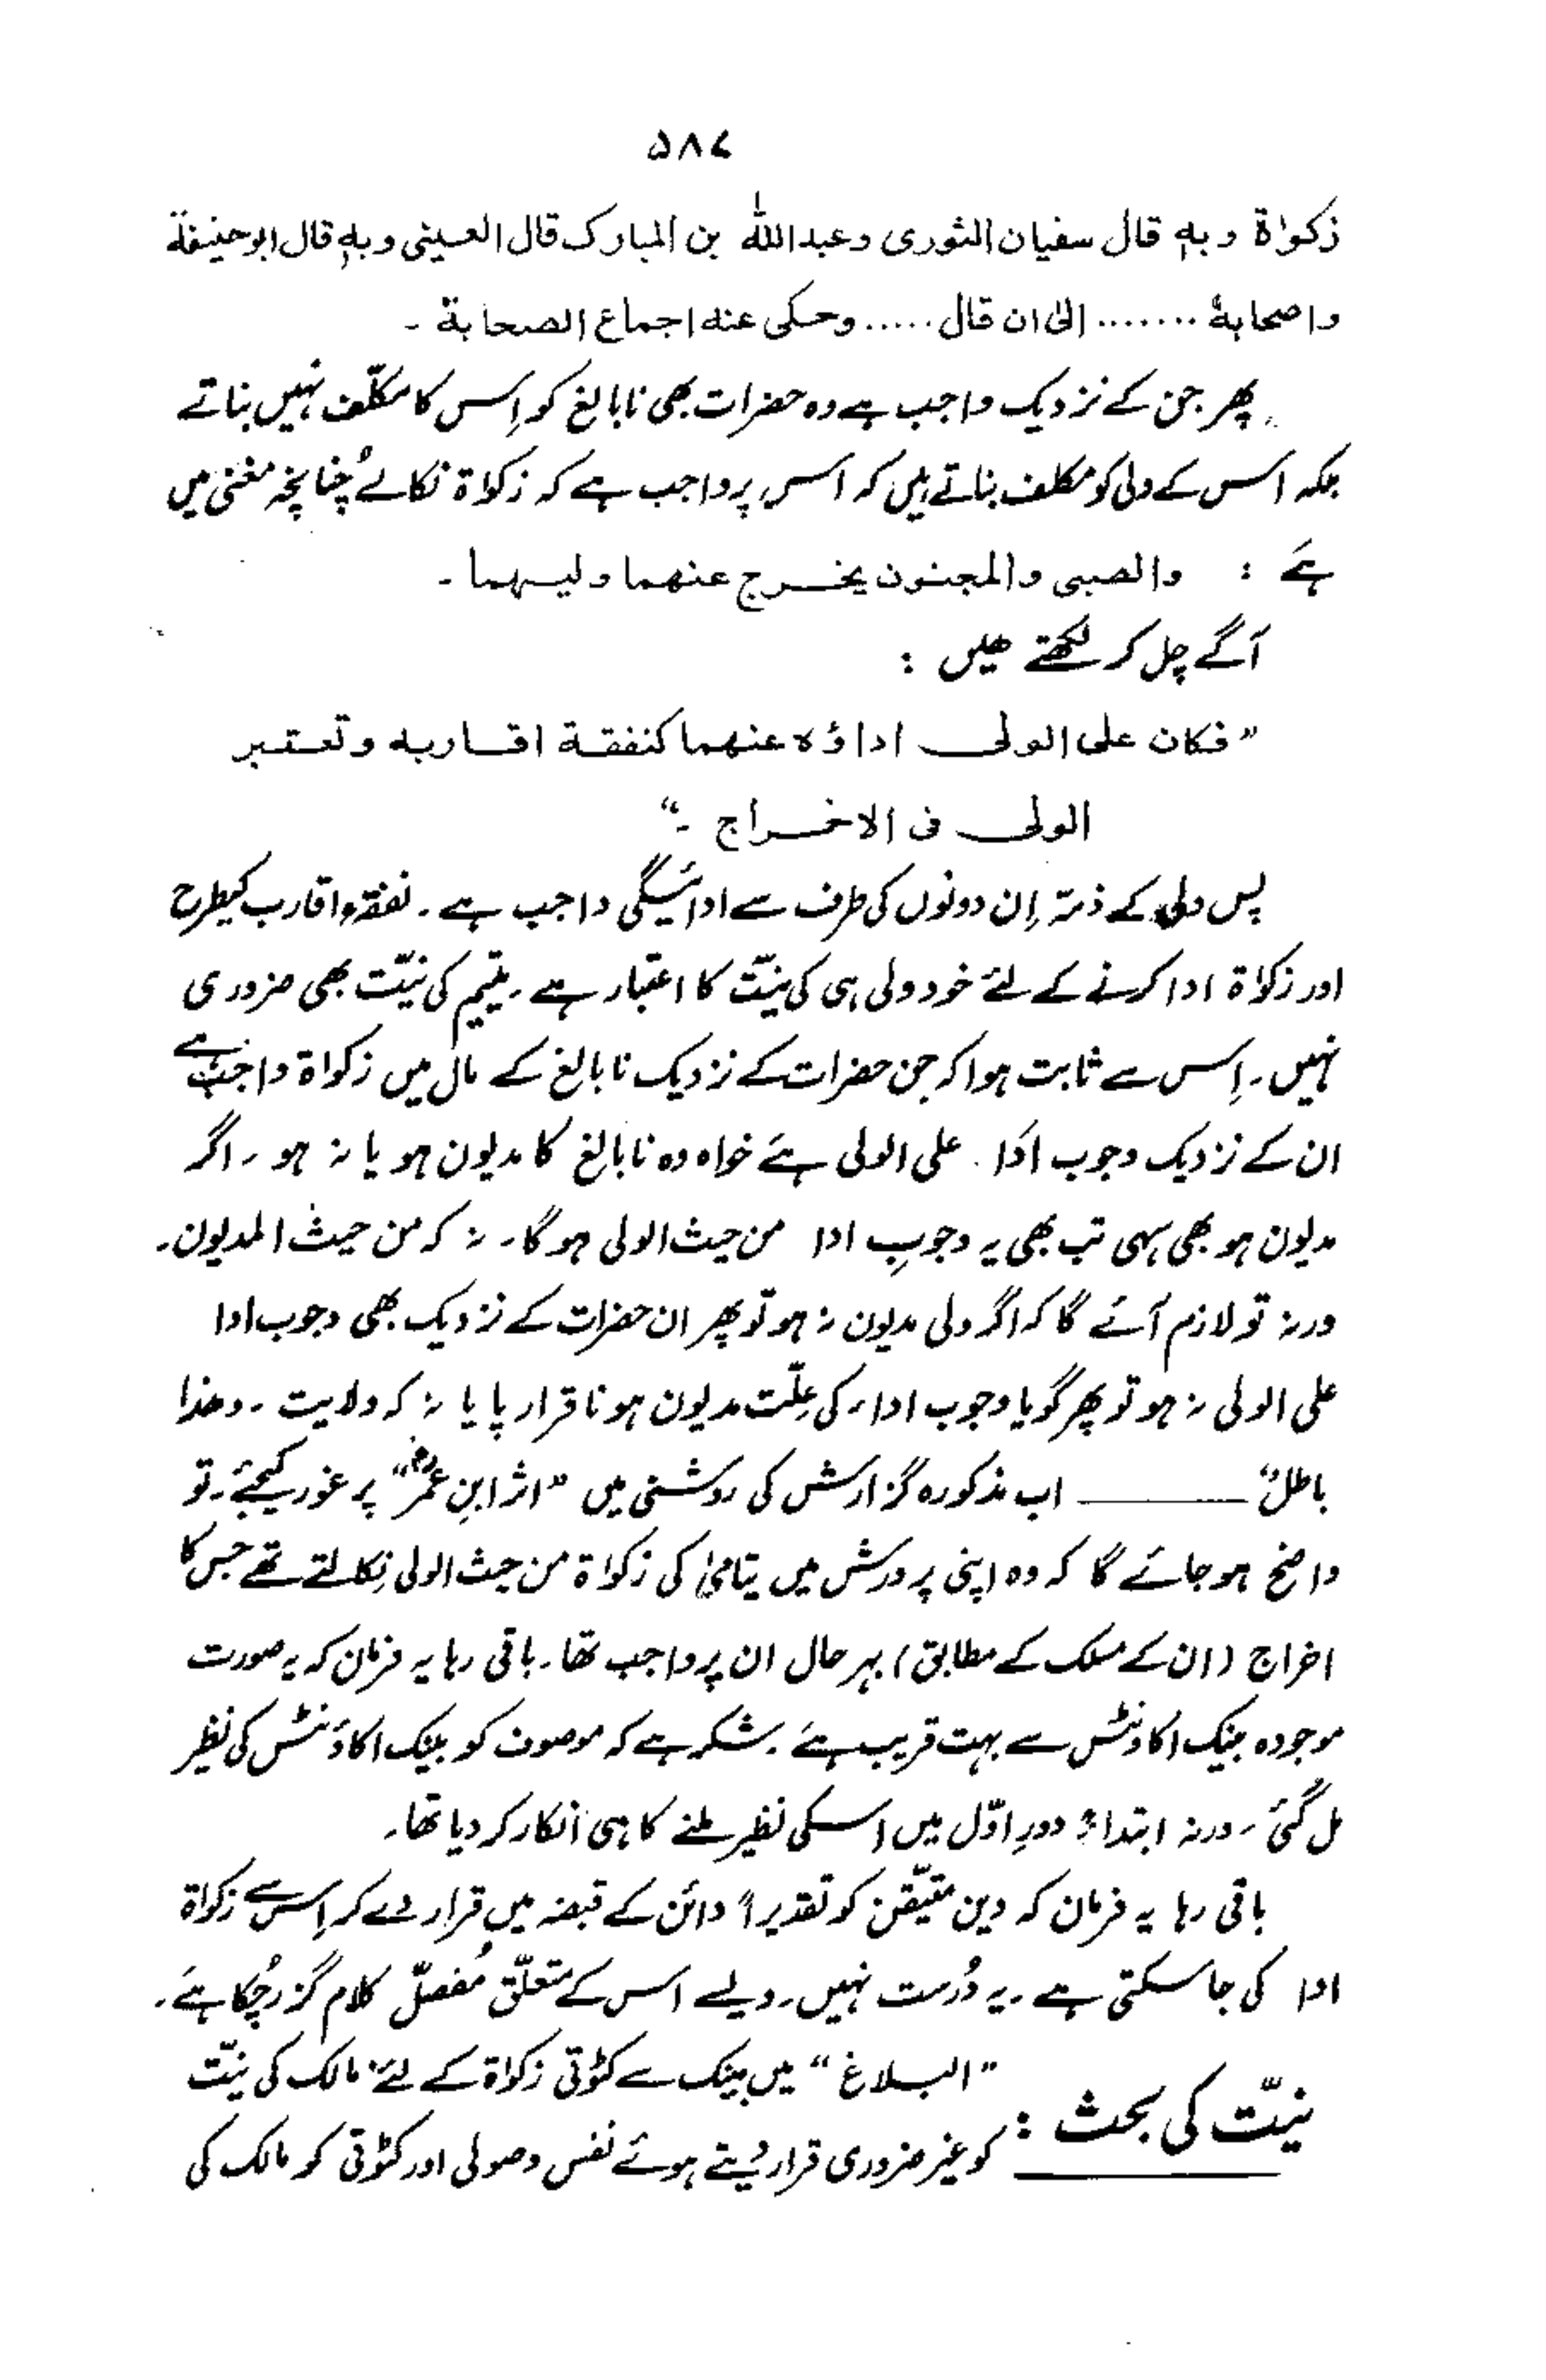 ۵۸۷
زکوٰاۃ وبہٖ قال سفیان الثوری وعبداللہ بن المبارک قال العینی وبہٖ قال ابوحنیفۃ
واصحابہٗ ........ الیٰ ان قال ...... وحکی عنہ اجماع الصحابۃ ۔
پھر جن کے نزدیک واجب ہے وہ حضرات بھی نابالغ کو اِس کا مکلّف نہیں بناتے
بلکہ اس کے ولی کو مکلف بناتے ہیں کہ اس پر واجب ہے کہ زکواۃ نکالے چُنانچہ مغنی میں
ہے : والصبی والمجنون یخرج عنہما ولیہما ۔
آگے چل کر لکھتے ھیں :
"فکان علی الولی اداؤہ عنہما کنفقۃ اقاربہ وتعتبر
الولی فی الاخراج ۔"
پس ولی کے ذمّہ اِن دونوں کی طرف سے ادائیگی واجب ہے ۔ نفقہء اقارب کیطرح
اور زکواۃ ادا کرنے کے لئے خود ولی ہی کی نیّت کا اعتبار ہے ۔ یتیم کی نیّت بھی ضروری
نہیں ۔ اِس سے ثابت ہوا کہ جن حضرات کے نزدیک نابالغ کے مال میں زکواۃ واجب ہے
ان کے نزدیک وجوب ادَا علی الولی ہے خواہ وہ نابالغ کا مدیون ہو یا نہ ہو ۔ اگر
مدیون ہو بھی سہی تب بھی یہ وجوبِ ادا من حیث الولی ہوگا ۔ نہ کہ من حیث المدیون ۔
ورنہ تو لازم آئے گا کہ اگر ولی مدیون نہ ہو تو پھر ان حضرات کے نزدیک بھی وجوب ادا
علی الولی نہ ہو تو پھر گویا وجوب اداء کی عِلّت مدیون ہونا قرار پایا نہ کہ ولایت ۔ وھذا
باطلٌ ——— اب مذکورہ گزارش کی روشنی میں "اثر ابنِ عمرؓ" پر غور کیجئے ۔ تو
واضح ہو جائے گا کہ وہ اپنی پرورش میں یتامیٰ کی زکواۃ من حیث الولی نِکالتے تھے جس کا
اخراج (ان کے مسلک کے مطابق) بہرحال ان پر واجب تھا ۔ باقی رہا یہ فرمان کہ یہ صورت
موجودہ بینک اکاؤنٹس سے بہت قریب ہے ۔ شکر ہے کہ موصوف کو بینک اکاؤنٹس کی نظیر
مل گئی ۔ ورنہ ابتداءً دورِ اوّل میں اسکی نظیر ملنے کا ہی انکار کر دیا تھا ۔
باقی رہا یہ فرمان کہ دین متیّقن کو تقدیراً دائن کے قبضہ میں قرار دے کر اِس سے زکواۃ
ادا کی جا سکتی ہے ۔ یہ دُرست نہیں ۔ ویسے اس کے متعلّق مُفصّل کلام گزر چُکا ہے ۔
نیّت کی بحث : "البلاغ" میں بینک سے کٹوتی زکواۃ کے لئے مالک کی نیّت
کو غیر ضروری قرار دیتے ہوئے نفس وصولی اور کٹوتی کو مالک کی